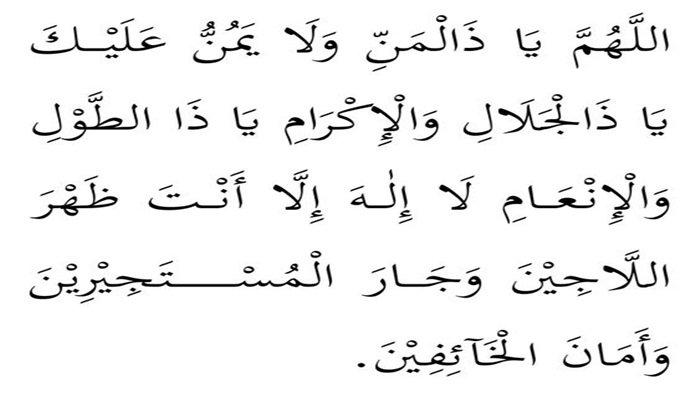 اللَّهُمَّ يَا ذَالْمَنِّ وَلَا يَمُنُّ عَلَيْكَ
يَا ذَالْجَلَالِ وَالْإِكْرَامِ يَا ذَا الطَّوْلِ
وَالْإِنْعَامِ لَا إِلٰهَ إِلَّا أَنْتَ ظَهْرَ
اللَّاجِيْنَ وَجَارَ الْمُسْتَجِيْرِيْنَ
وَأَمَانَ الْخَآئِفِيْنَ.